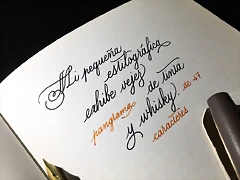 Mi pequeña
estilográfica
exhibe vejez
de tinta
y whisky.
pangrama de 47
caracteres